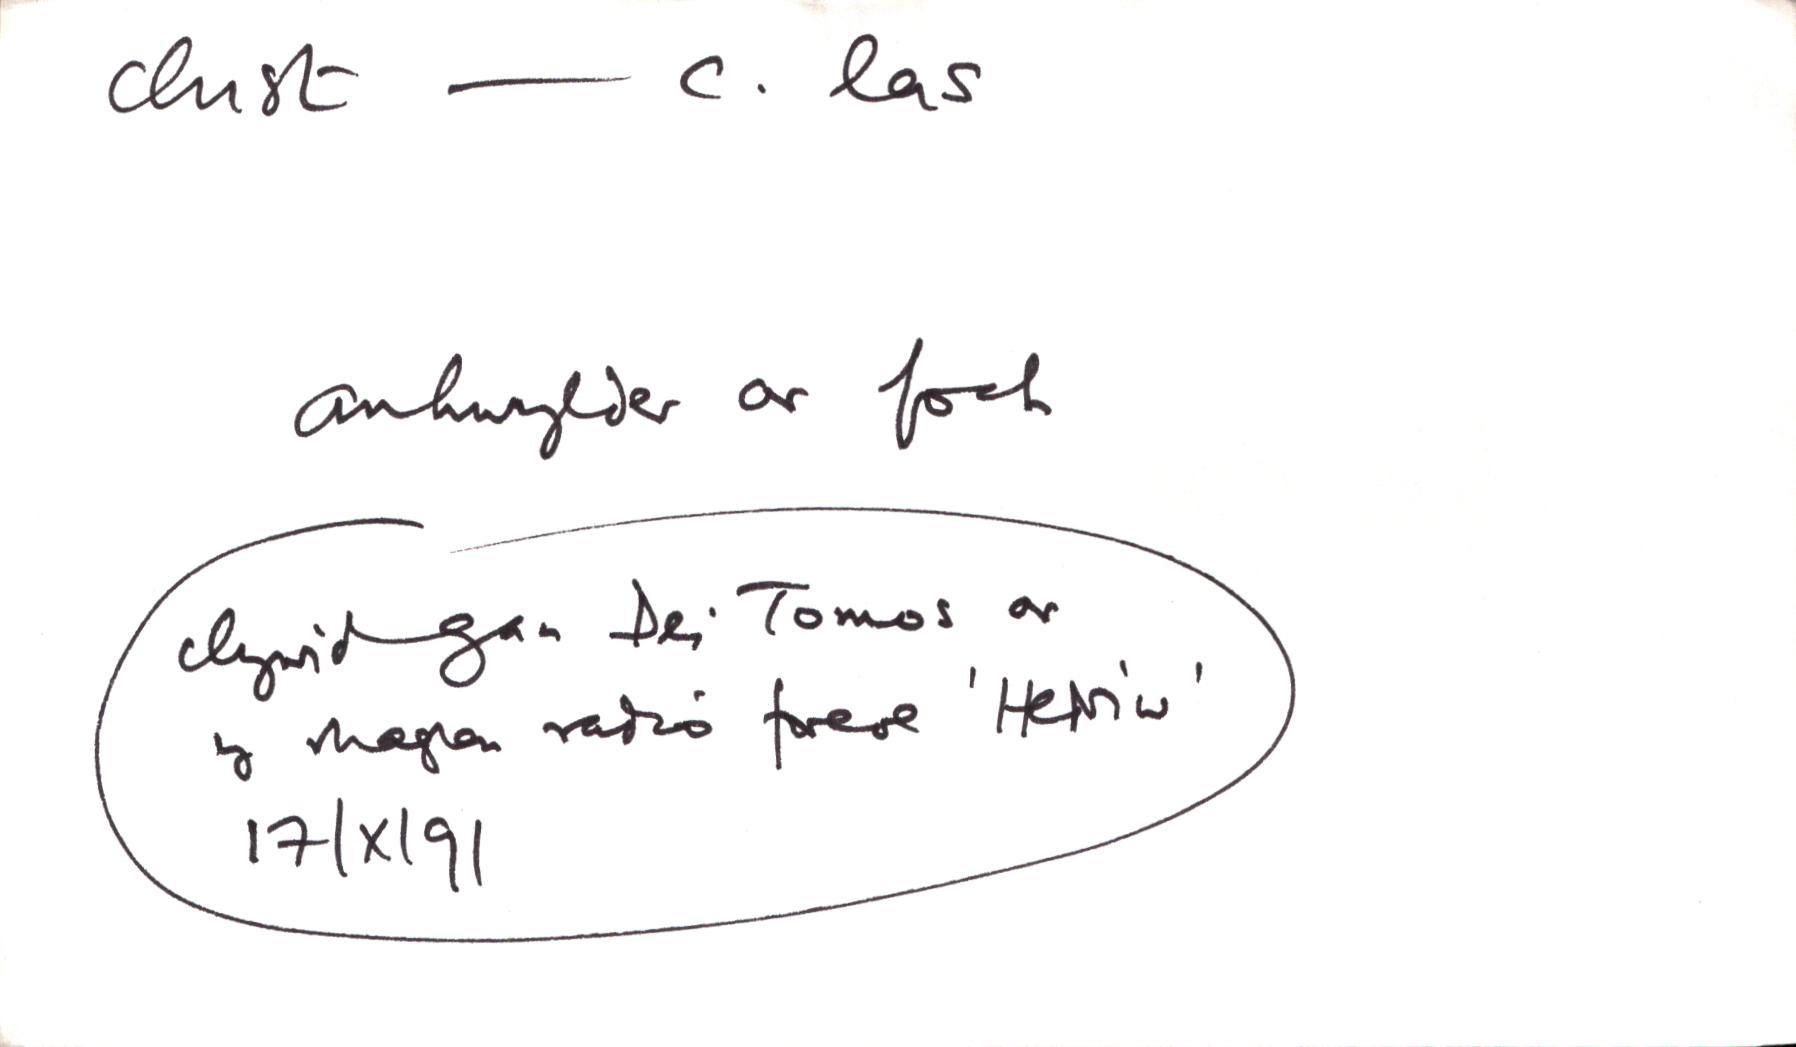 clust — c. las
anhwylder ar foch
clywid gan Dei Tomos ar
y rhaglen radio foreol 'Heddiw'
17/X/91